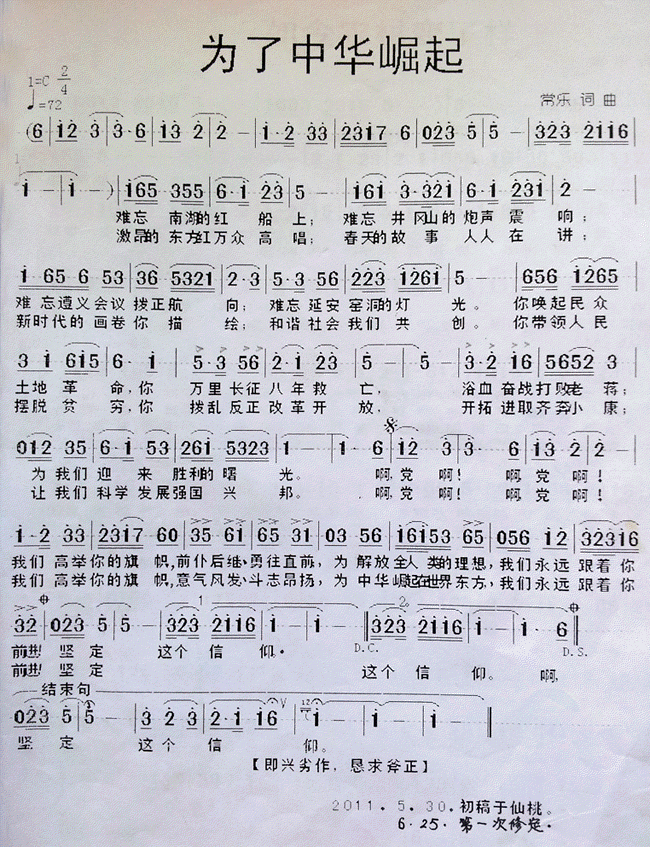 为了中华崛起
1=C 2/4
♩=72
常乐 词 曲
难忘 南湖的红 船 上；难忘 井冈山的 炮声 震 响；
激昂的 东方红万众 高 唱；春天的 故 事 人人 在 讲；
难 忘遵义会议 拨正航 向；难忘 延安 窑洞的灯 光。你唤起民众
新时代的 画卷 你 描 绘；和谐 社会 我们 共 创。你带领人民
土地 革 命，你 万里 长征 八年 救 亡， 浴血 奋战打败老 蒋；
摆脱 贫 穷，你 拨乱 反正 改革 开 放， 开拓 进取齐奔小 康；
为 我们 迎 来 胜利的 曙 光。 啊，党 啊！ 啊，党 啊！
让 我们 科学 发展强国 兴 邦。 啊，党 啊！ 啊，党 啊！
我们 高举你的旗 帜，前仆后继、勇往直前，为 解放 全人 类的理想，我们永远 跟着你
我们 高举你的旗 帜，意气风发、斗志昂扬，为 中华 崛起在世界 东方，我们永远 跟着你
1 2
前进！坚定 这个 信 仰。 D.C. D.S.
前进！坚定 这个 信 仰。啊，
结束句
坚 定 这个 信 仰。
【即兴劣作，恳求斧正】
2011．5．30．初稿于仙桃。
6·25．第一次修定．